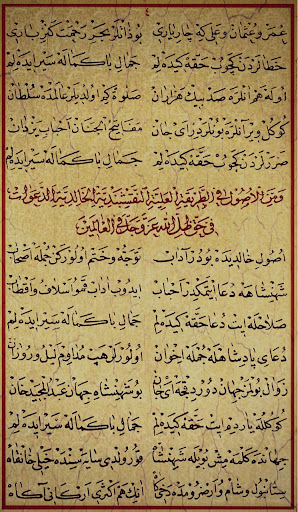 ٤
عمر و عثمان و علی که چار یاری بو ذاتلر بحر رحمت کنز باری
خطالردن کچوب حقه کیده لم جمال باکماله سیر ایده لم
اوله هم انلره صد بیك هزاران اولدیلر عالمده سلطان
کوکل ویر آنلره بونلردر ای جان مفاتیح الجنان احباب یزدان
ضررلردن کچوب حقه کیده لم جمال باکماله سیر ایده لم
ومن الاصول فی الطریقة العلیة النقشبندیة الخالدیة الدعوات
فی حفظ ظل الله عز وجل فی العالمین
اصول خالدیده بودر آداب توجه و ختم اولورکن جمله اصحاب
شهنشاهه دعا ایتمکدر احباب ایدوب اداب قمو اسلاف و اقطاب
صلاحله ایت دعا حقه کیده لم جمال باکماله سیر ایده لم
دعای پادشاهله جمله اخوان اولورلر هپ مداوم لیل و روزان
زوال بولمز جهان دوردقجه ای جان بو شهنشاه جهان عبدالمجید خان
کوکلله یاردم ایت حقه کیده لم جمال باکماله سیر ایده لم
جهانده کلمه مش بویله شهنشاه قورولدی سایه سنده خیلی خانقاه
ستانبول و شام و ارض رومده انك هم اکثری ارکانی آکاه